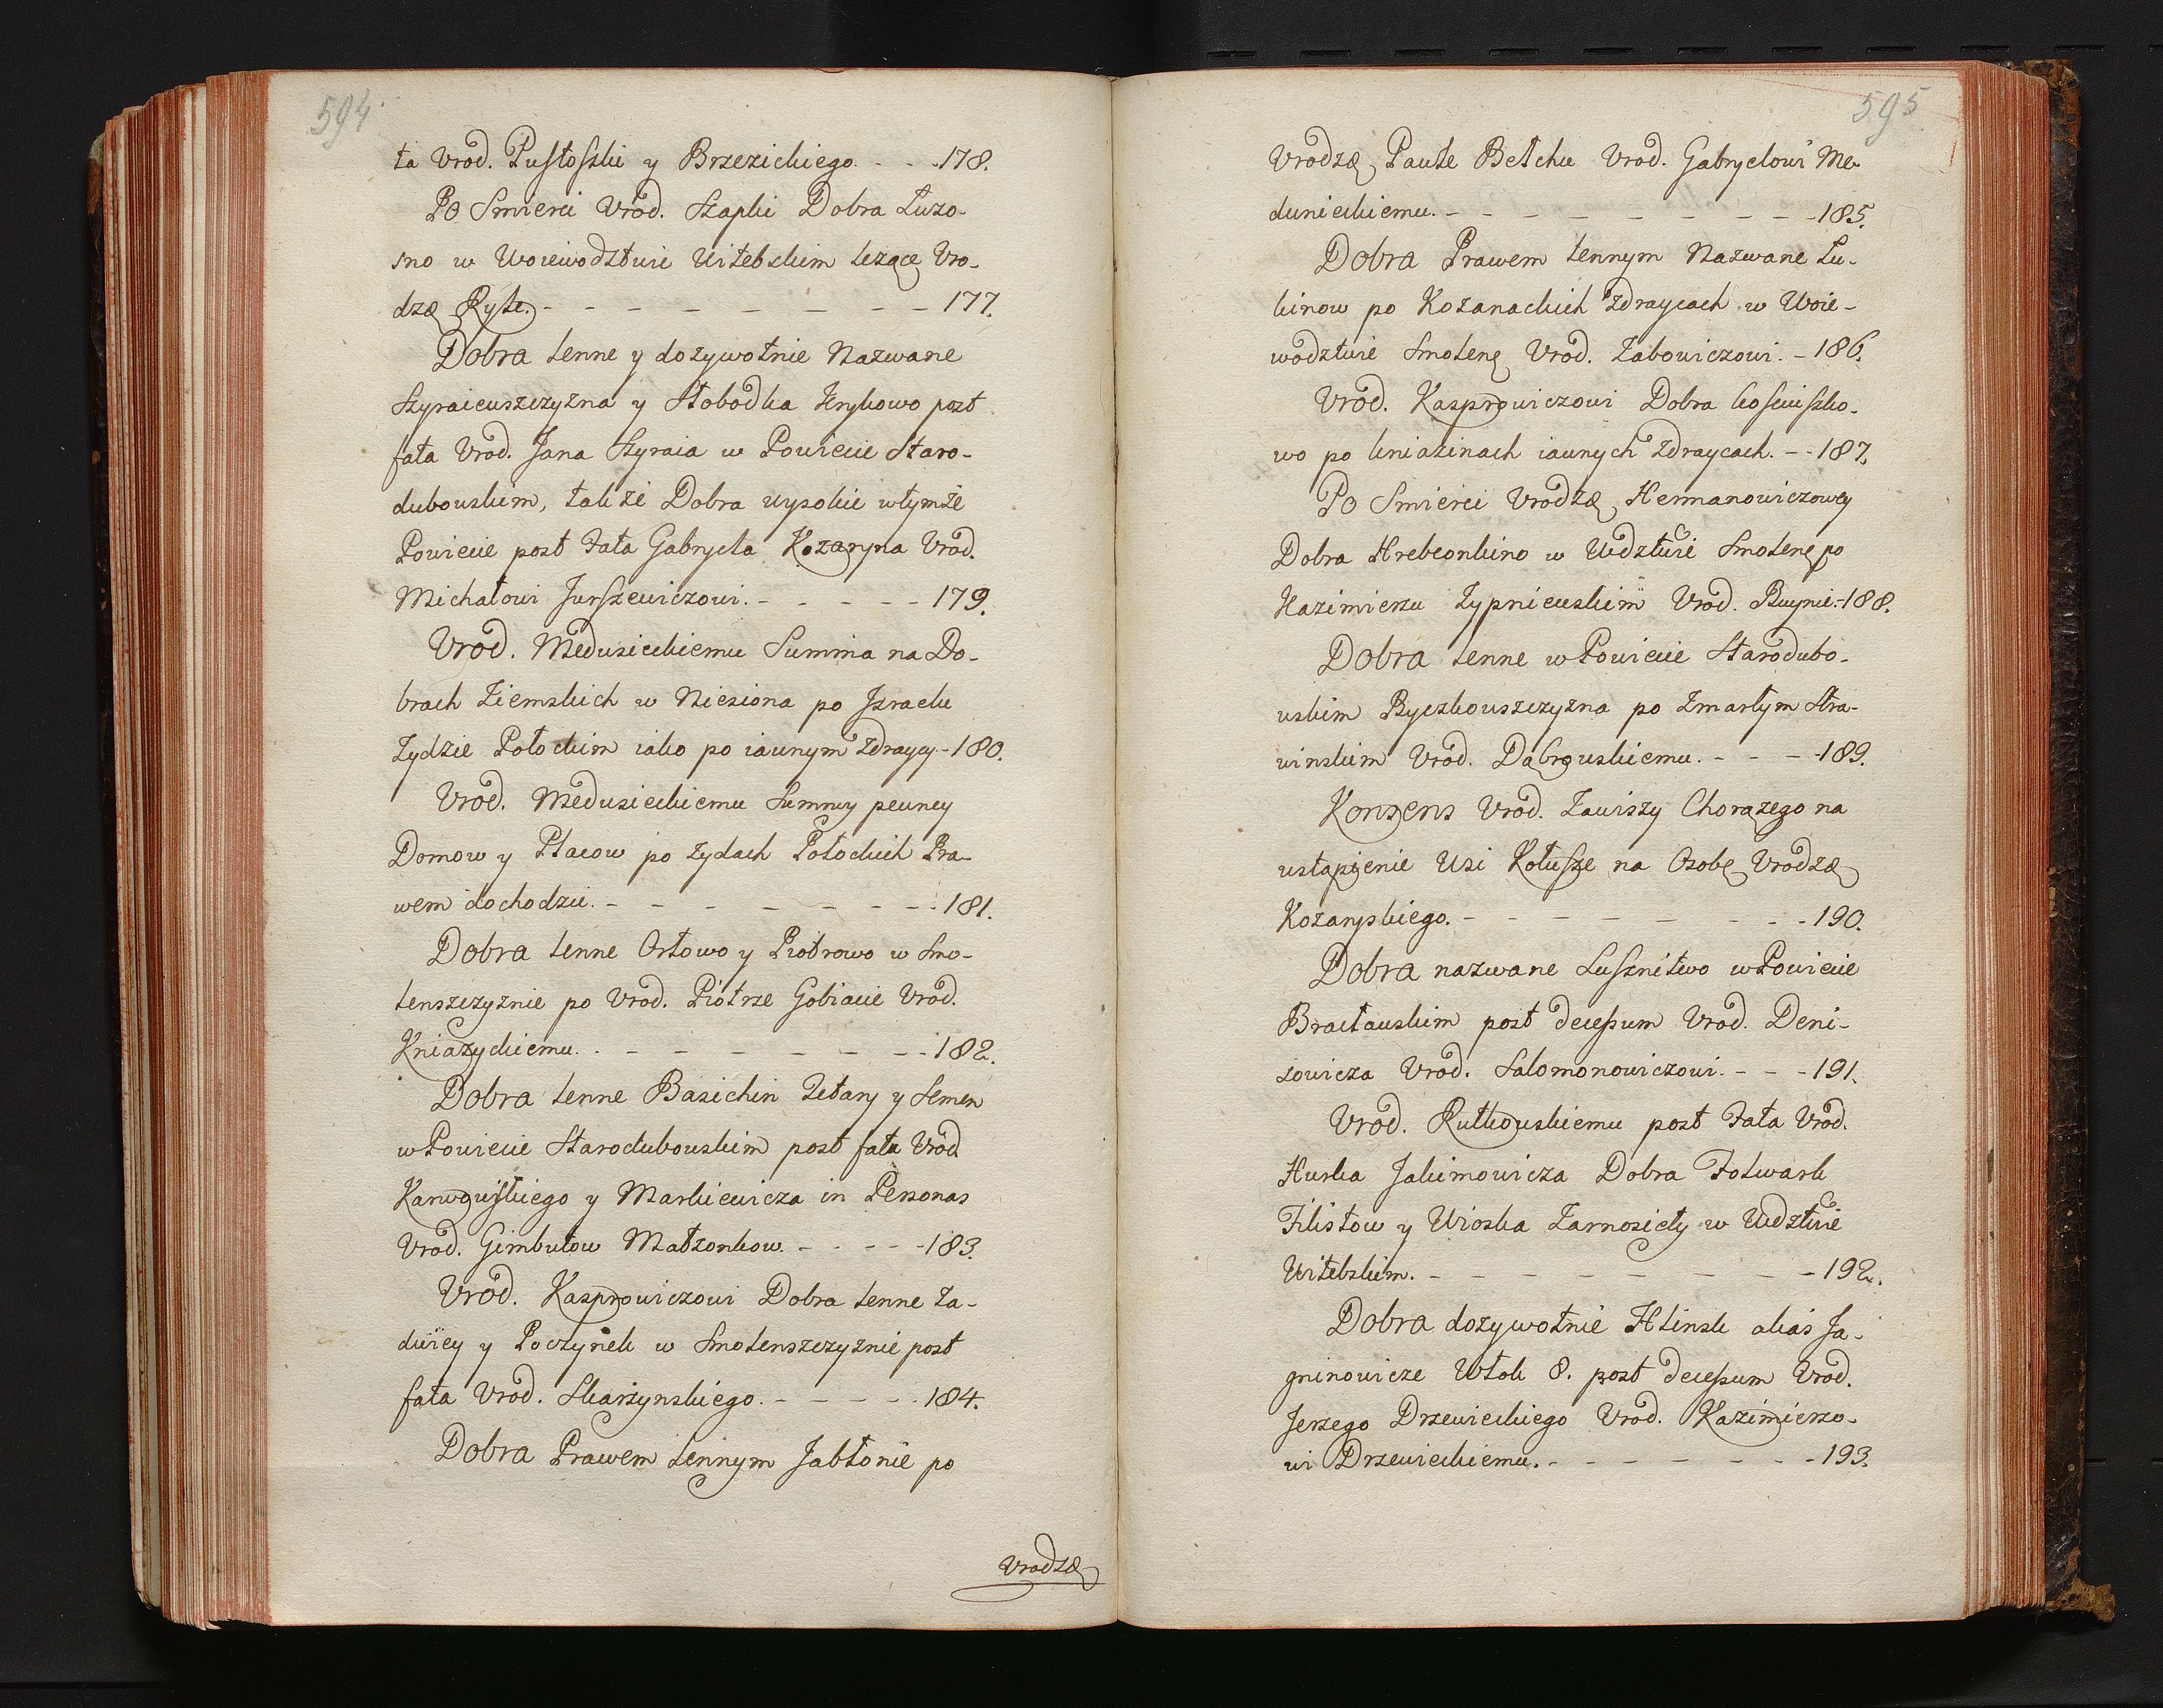 594.
ta Vrod. Pustoszki y Brzezickiego. - - - 178.
Po Smierci Vrod. Szapki Dobra Łuzo-
sno w Woiewodztwie Witebskim leżące Vro-
dzę Ryle. - - - - - - - - 177.
Dobra lenne y dozywotnie Nazwane
Szyraiewszczyzna y Słobodka Hrykowo post
fata Vrod. Jana Szyraia w Powiecie Staro-
dubowskim, także Dobra wysokie wtymże
Powiecie post Fata Gabryela Kozaryna Vrod.
Michałowi Jurszewiczowi. - - - - - 179.
Vrod. Medunickiemu Summa na Do-
brach Ziemskich w Niesiona po Jzraelu
Zydzie Połockim iako po iawnym Zdraycy - 180.
Vrod. Medunieckiemu Summy pewney
Domow y Placow po Zydach Połockich Pra-
wem dochodzić. - - - - - - - 181.
Dobra lenne Orłowo y Piotrowo w Smo-
lenszczyznie po Vrod. Piotrze Gobiacie Vrod.
Kniazyckiemu. - - - - - - - 182.
Dobra lenne Basichin Zetary y Semen
w Powiecie Starodubowskim post fata Vrod.
Karwowskiego y Markiewicza in Personas
Vrod. Gimbutow Małzonkow. - - - - 183.
Vrod. Kasprowiczowi Dobra lenne Ła-
dwiey y Poczynek w Smolenszczyznie post
fata Vrod. Skarzynskiego. - - - - - 184.
Dobra Prawem lennym Jabłonie po
Vrodzę
595
Vrodzę Pawle Betchu Vrod. Gabryelowi Me-
dunieckiemu. - - - - - - - - 185.
Dobra Prawem lennym Nazwane Lu-
kinow po Kozanackich Zdraycach w Woie-
wodztwie Smolenę Vrod. Zabowiczowi. - 186.
Vrod. Kasprowiczowi Dobra kosciszko-
wo po kniazinach iawnych Zdraycach. - - 187.
Po Smierci Vrodzę Hermanowiczowey
Dobra Hrebeonkino w Wdztwie Smolenę po
Kazimierzu Zypniewskim Vrod. Ruynie. - 188.
Dobra lenne w Powiecie Starodubo-
wskim Ryczkowszczyzna po Zmarłym Stra-
winskim Vrod. Dąbrowskiemu. - - - - 189.
Konsens Vrod. Zawiszy Chorązego na
ustąpienie Wsi Kołusze na Osobę Vrodzę
Kozaryskiego. - - - - - - - - 190.
Dobra nazwane Lusznitwo w Powiecie
Bracławskim post decessum Vrod. Deni-
sowicza Vrod. Salomonowiczowi. - - - 191.
Vrod. Rutkowskiemu post Fata Vrod.
Hurka Jakimowicza Dobra Folwark
Filistow y Wioska Zarnosieły w Wdztwie
Witebskim. - - - - - - - - 192.
Dobra dozywotnie Hlinsk alias Ja-
gninowicze Włok 8. post decessum Vrod.
Jerzego Drzewieckiego Vrod. Kazimierzo-
wi Drzewieckiemu. - - - - - - - 193.